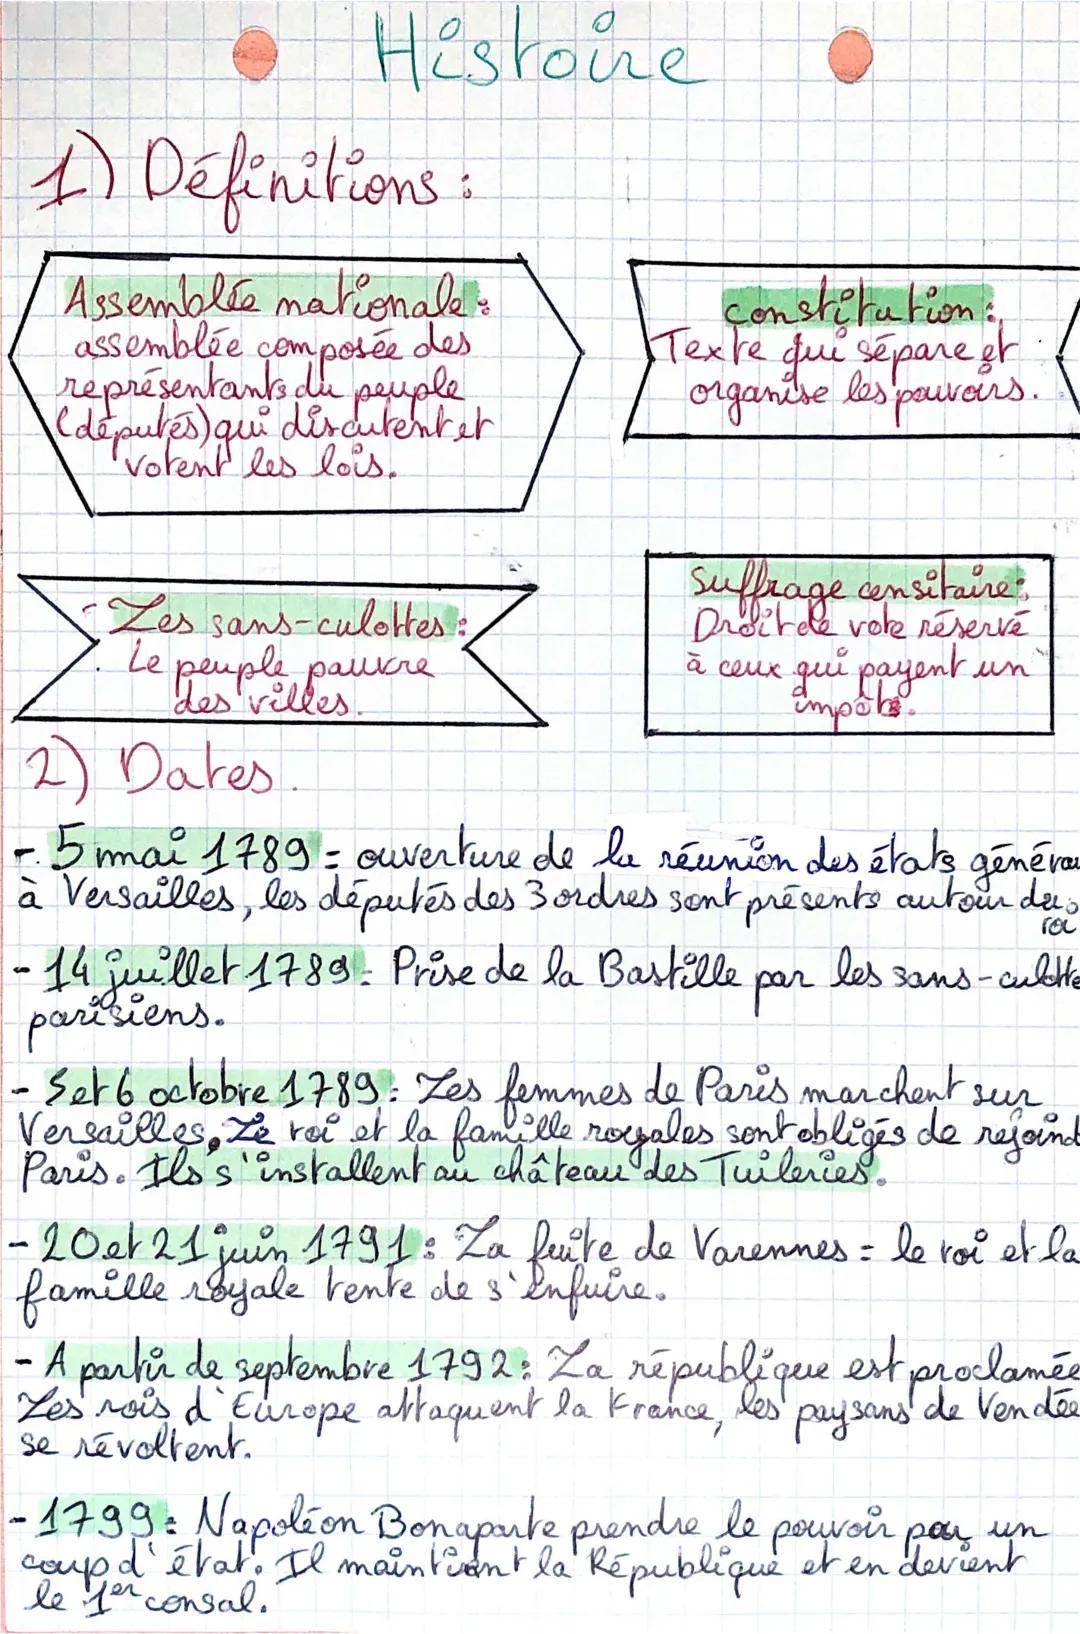 Histoire
1) Définitions :
Assemblée nationale :
assemblée composée des
représentants du peuple
(députés) qui discutent et
votent les lois.
constitution :
Texte qui sépare et
organise les pouvoirs.
Les sans-culottes :
Le peuple pauvre
des villes.
Suffrage censitaire :
Droit de vote réservé
à ceux qui payent un
impôt.
2) Dates.
- 5 mai 1789 = ouverture de la réunion des états générau
à Versailles, les députés des 3 ordres sont présents autour du
roi
- 14 juillet 1789 = Prise de la Bastille par les sans-culotte
parisiens.
- 5 et 6 octobre 1789 : Les femmes de Paris marchent sur
Versailles. Le roi et la famille royales sont obligés de rejoind
Paris. Ils s'installent au château des Tuileries.
- 20 et 21 juin 1791 : La fuite de Varennes = le roi et la
famille royale tente de s'enfuire.
- A partir de septembre 1792 : La république est proclamée
Les rois d'Europe attaquent la France, les paysans de Vendée
se révoltent.
- 1799 : Napoléon Bonaparte prendre le pouvoir par un
coup d'état. Il maintient la République et en devient
le 1er consal.